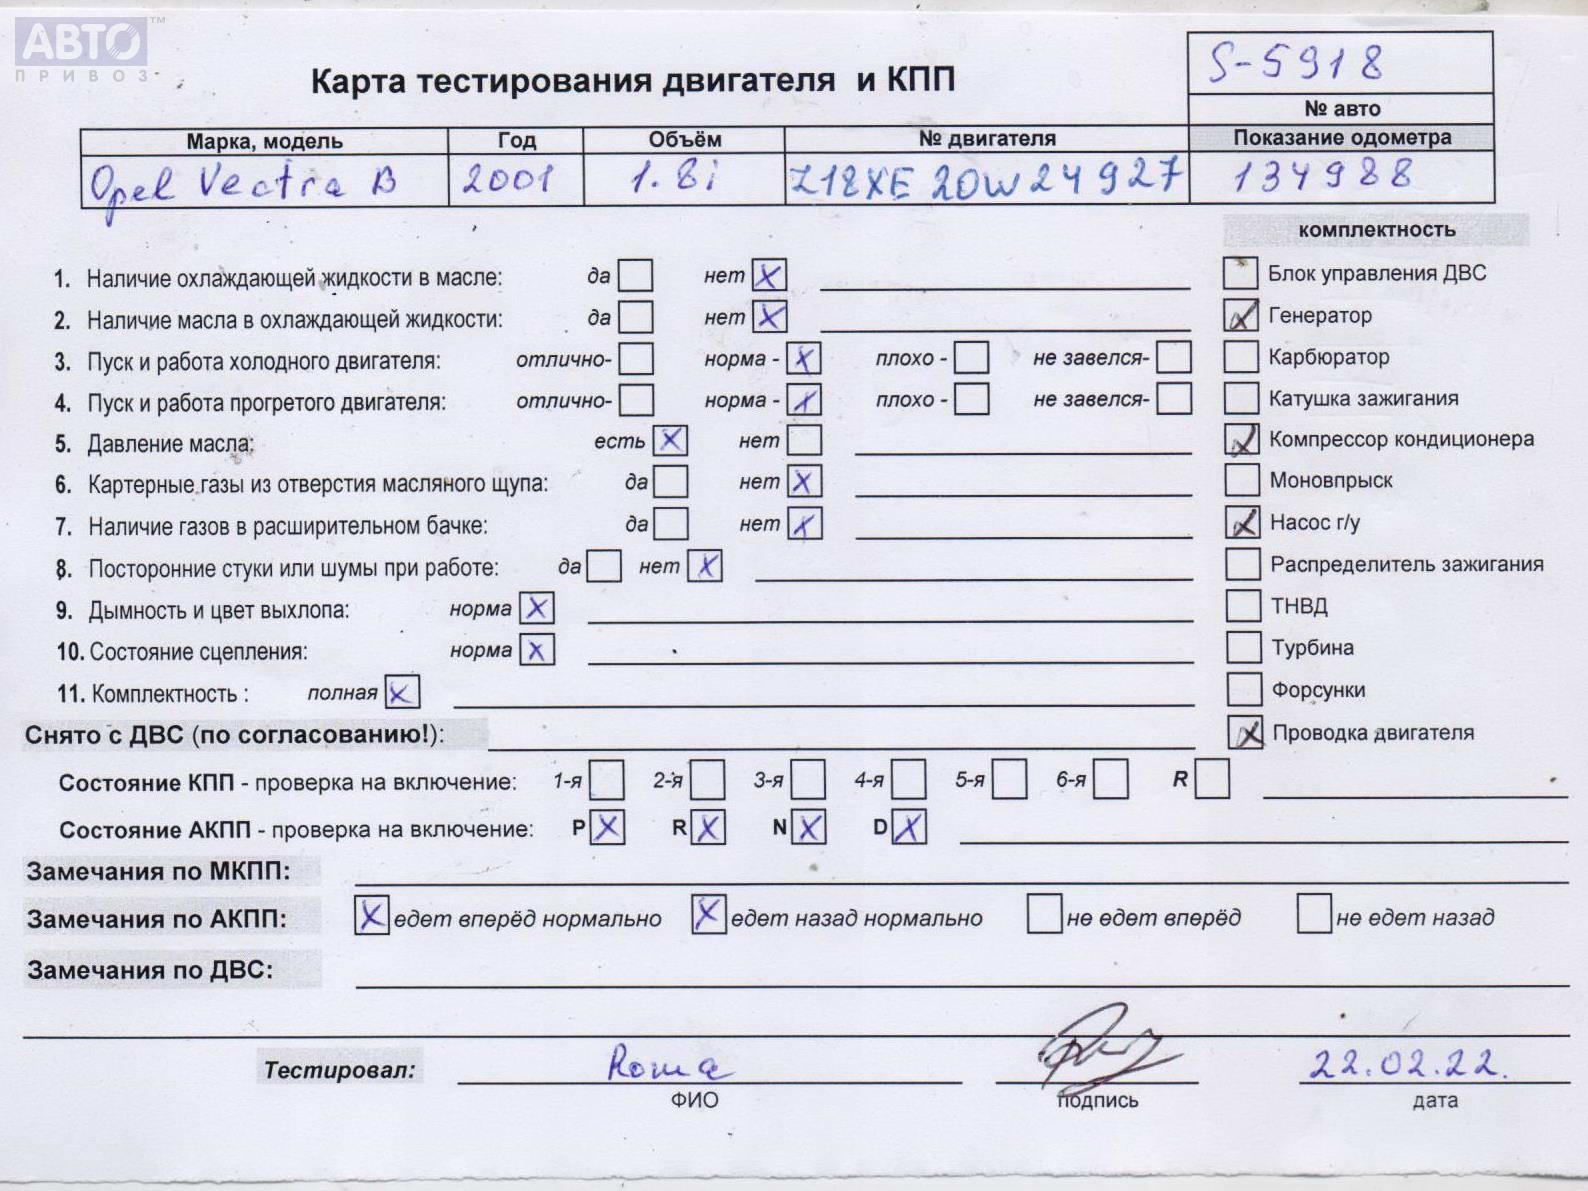 АВТО™
ПРИВОЗ
Карта тестирования двигателя и КПП
S-5918
№ авто
Марка, модель Год Объём № двигателя Показание одометра
Opel Vectra B 2001 1.8i Z18XE 20W24927 134988
комплектность
1. Наличие охлаждающей жидкости в масле: да нет X
Блок управления ДВС
2. Наличие масла в охлаждающей жидкости: да нет X
Генератор X
3. Пуск и работа холодного двигателя: отлично- норма - X плохо - не завелся-
Карбюратор
4. Пуск и работа прогретого двигателя: отлично- норма - X плохо - не завелся-
Катушка зажигания
5. Давление масла: есть X нет
Компрессор кондиционера X
6. Картерные газы из отверстия масляного щупа: да нет X
Моновпрыск
7. Наличие газов в расширительном бачке: да нет X
Насос г/у X
8. Посторонние стуки или шумы при работе: да нет X
Распределитель зажигания
9. Дымность и цвет выхлопа: норма X
ТНВД
10. Состояние сцепления: норма X
Турбина
11. Комплектность : полная X
Форсунки
Снято с ДВС (по согласованию!):
Проводка двигателя X
Состояние КПП - проверка на включение: 1-я 2-я 3-я 4-я 5-я 6-я R
Состояние АКПП - проверка на включение: P X R X N X D X
Замечания по МКПП:
Замечания по АКПП: X едет вперёд нормально X едет назад нормально не едет вперёд не едет назад
Замечания по ДВС:
Тестировал: Roma 22.02.22.
ФИО подпись дата